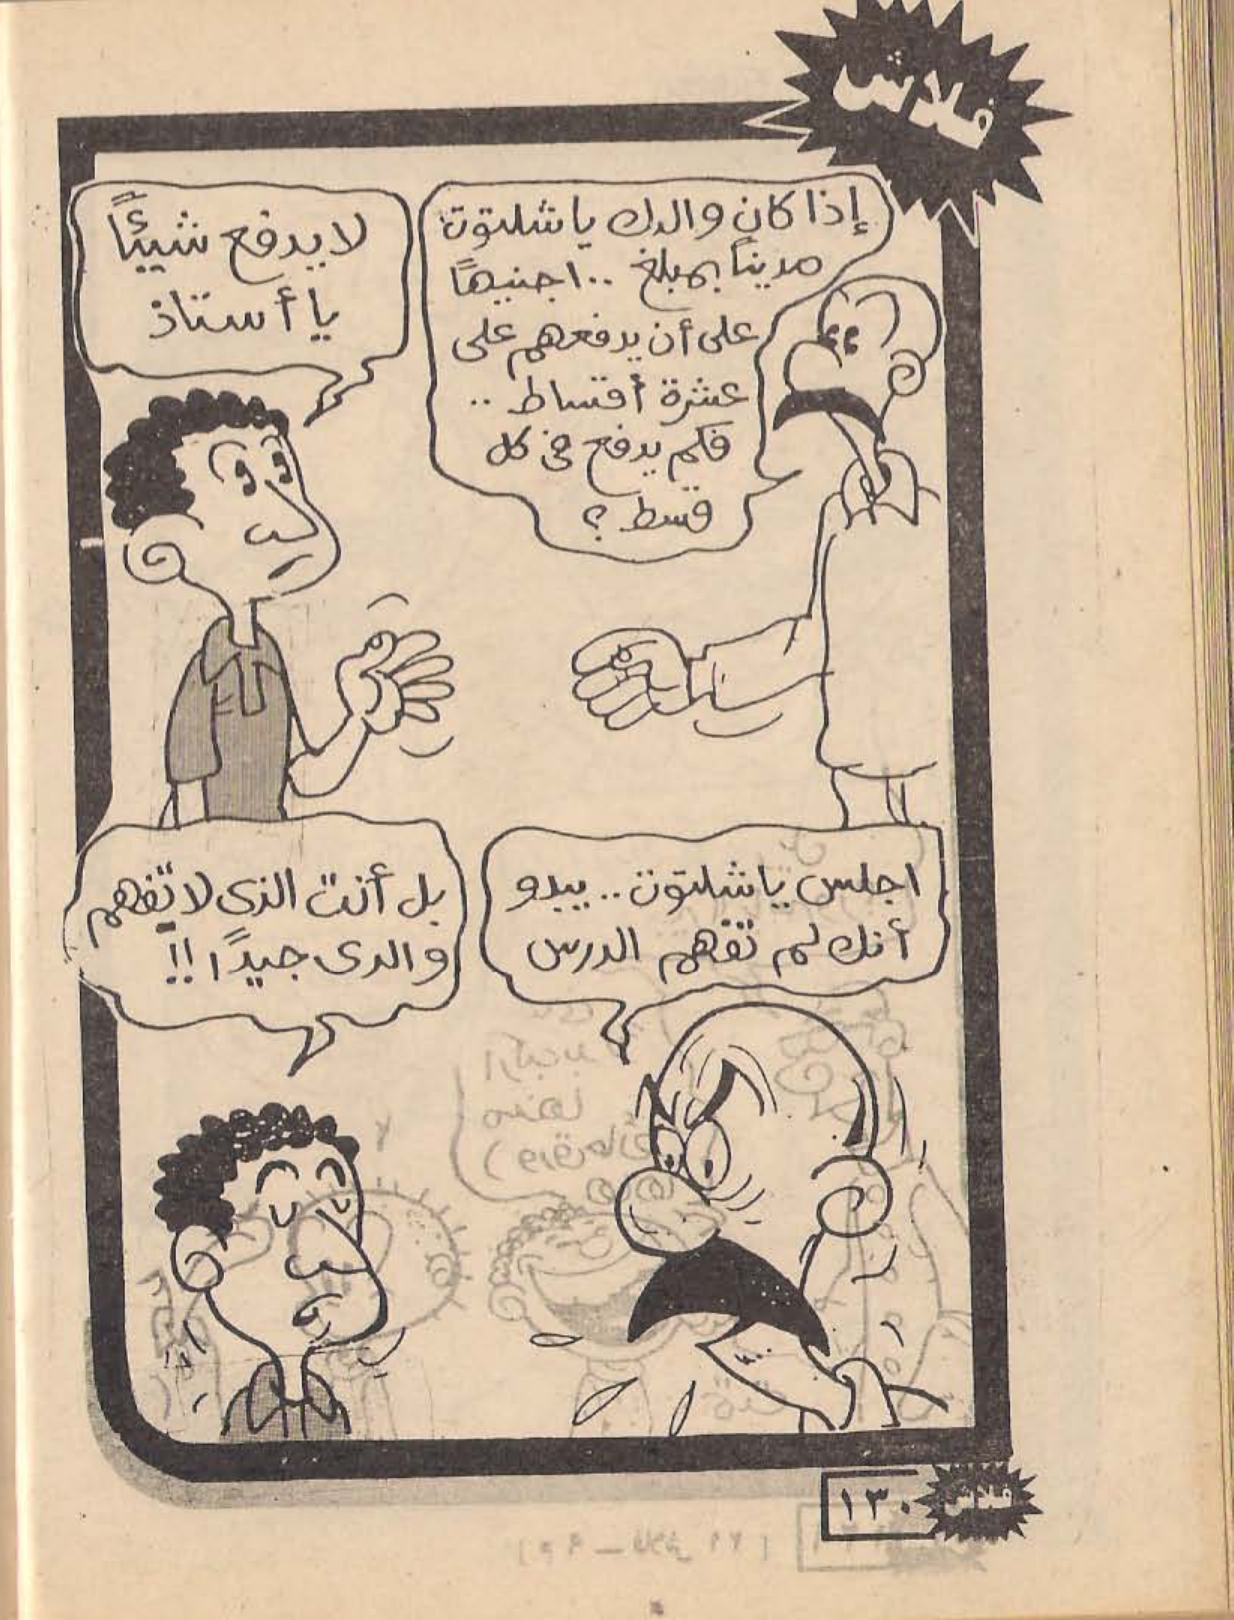 فلاش
إذا كان والدك يا شلتوت
مديناً بمبلغ ١٠٠ جنيهاً
على أن يدفعهم على
عشرة أقساط ..
فكم يدفع فى كل
قسط ؟
لا يدفع شيئاً
يا أستاذ
اجلس يا شلتوت .. يبدو
أنك لم تفهم الدرس
بل أنت الذى لا تفهم
والدى جيداً !!
١٣٠
فلاش